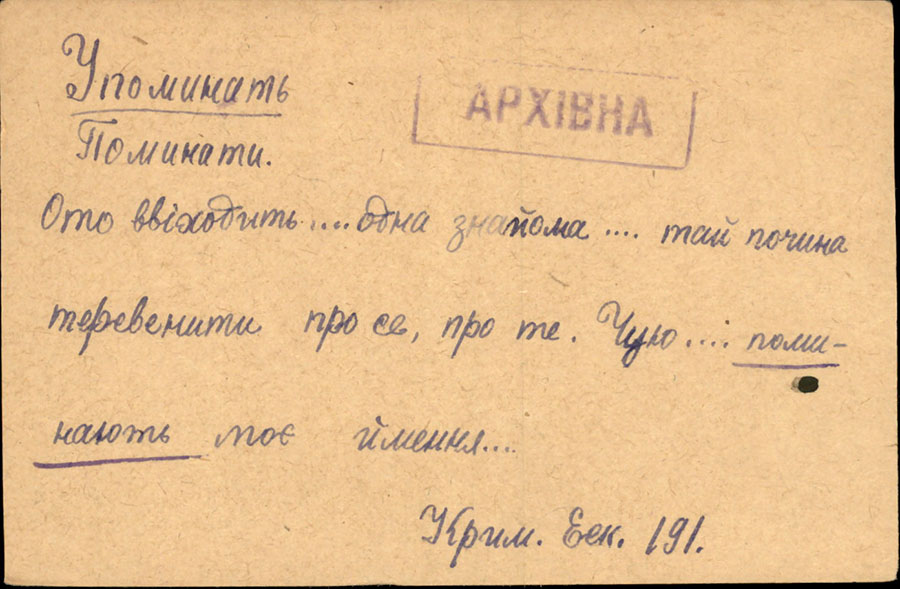 Упоминать
АРХІВНА
Поминати.
Ото ввіходить....одна знайома .... тай почина
теревенити про се, про те. Чую.... поми-
нають моє ймення....
Крим. Бек. 191.